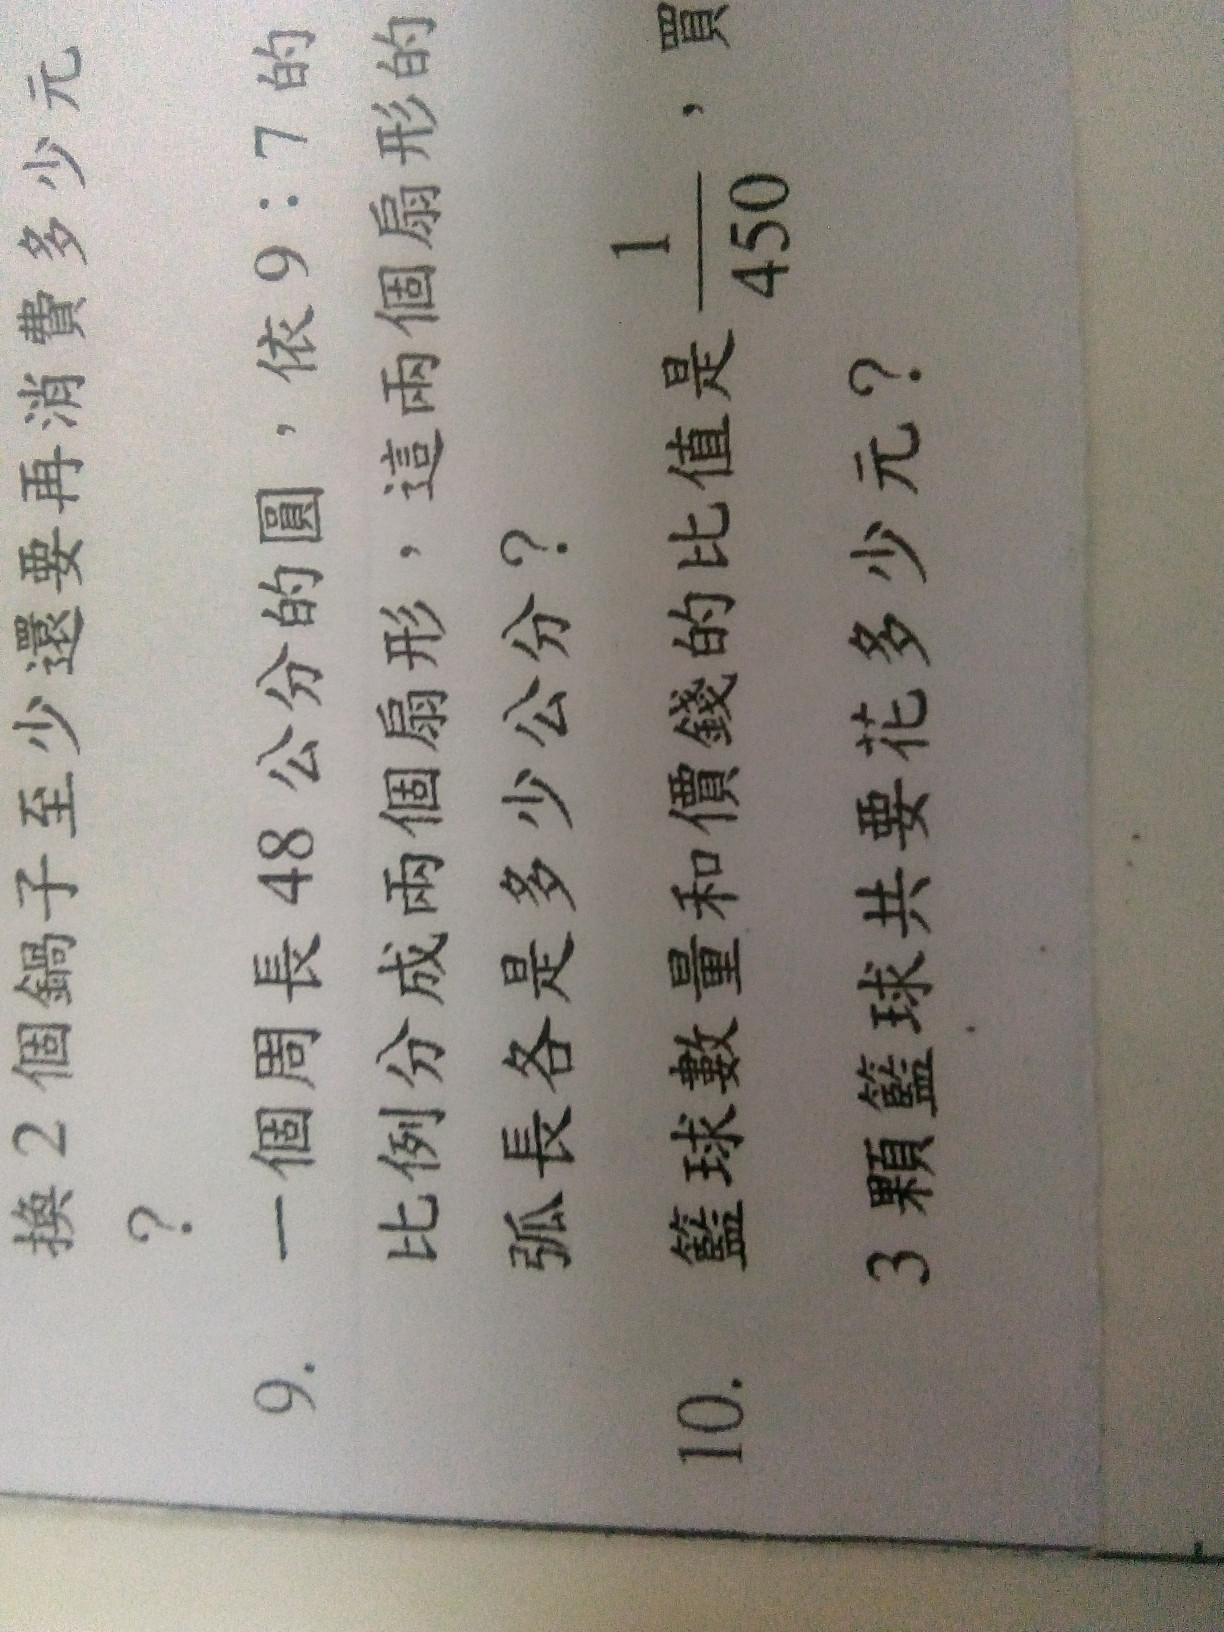 換 2 個鍋子至少還要再消費多少元
?
9. 一個周長 48 公分的圓,依 9:7 的
比例分成兩個扇形,這兩個扇形的
弧長各是多少公分?
10. 籃球數量和價錢的比值是 1/450,買
3 顆籃球共要花多少元?